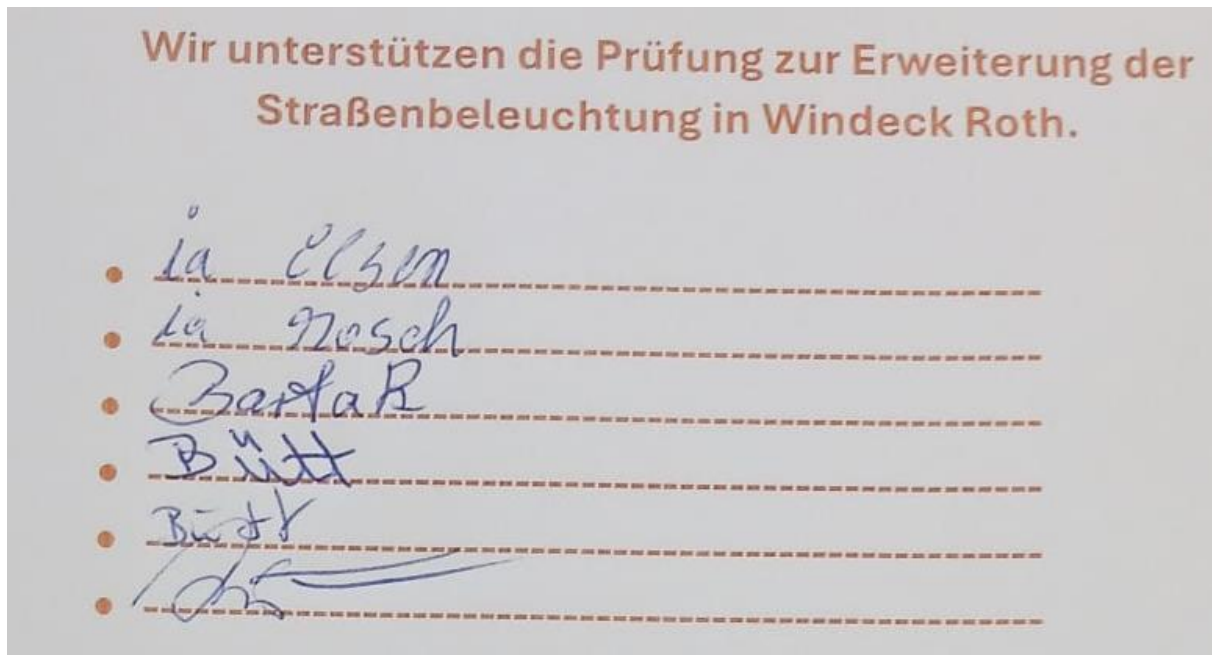 Wir unterstützen die Prüfung zur Erweiterung der
Straßenbeleuchtung in Windeck Roth.
ja
ja Nosch
Bartak
Bütt
Bütt